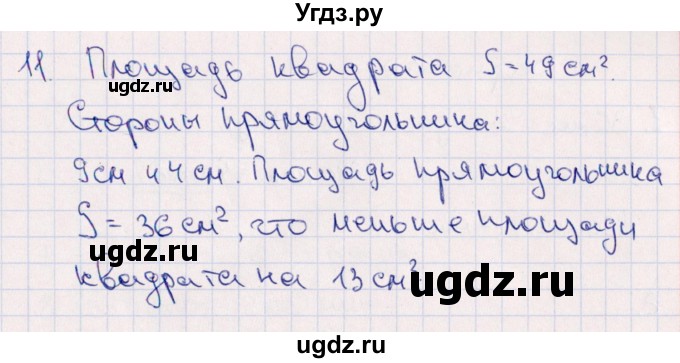 Угдз.ру
11. Площадь квадрата S = 49 см².
ugdz.ru
ugdz.ru
Стороны прямоугольника:
9 см и 4 см. Площадь прямоугольника
S = 36 см², что меньше площади
ugdz.ru
ugdz.ru
квадрата на 13 см²
ugdz.ru
ugdz.ru